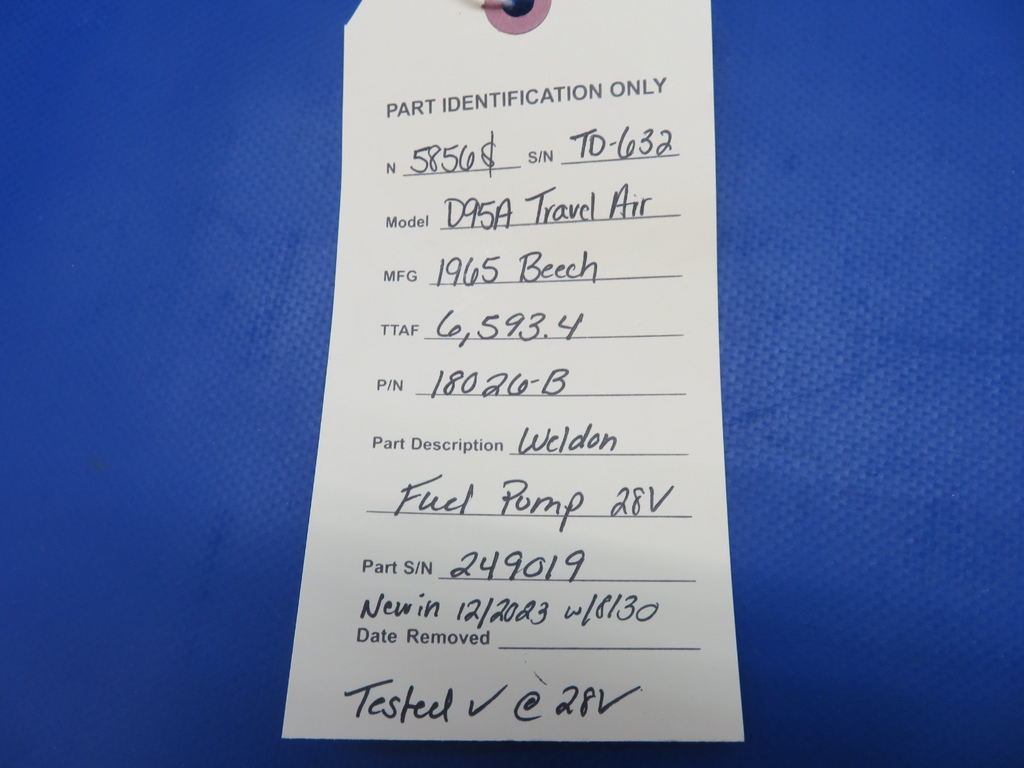 PART IDENTIFICATION ONLY
N 5856 S/N TD-632
Model D95A Travel Air
MFG 1965 Beech
TTAF 6,593.4
P/N 18026-B
Part Description Weldon
Fuel Pump 28V
Part S/N 249019
New in 12/2023 w/8130
Date Removed
Tested ✓ @ 28V